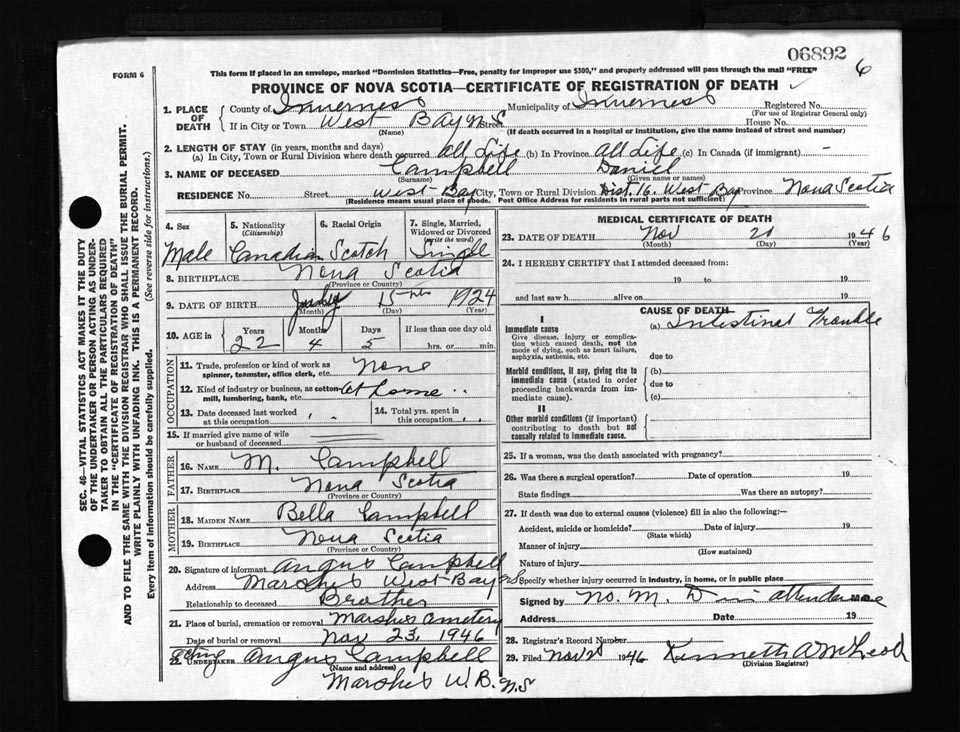 06892
6
FORM 6
This form if placed in an envelope, marked "Dominion Statistics—Free, penalty for improper use $300," and properly addressed will pass through the mail "FREE"
PROVINCE OF NOVA SCOTIA—CERTIFICATE OF REGISTRATION OF DEATH
1. PLACE OF DEATH
County of Inverness Municipality of Inverness Registered No.
(For use of Registrar General only)
If in City or Town West Bay N.S. Street House No.
(Name) (If death occurred in a hospital or institution, give the name instead of street and number)
2. LENGTH OF STAY (in years, months and days)
(a) In City, Town or Rural Division where death occurred All Life (b) In Province All Life (c) In Canada (if immigrant) –
3. NAME OF DECEASED Campbell Daniel
(Surname) (Given name or names)
RESIDENCE No. Street West Bay City, Town or Rural Division Dist. 16. West Bay Province Nova Scotia
(Residence means usual place of abode. Post Office Address for residents in rural parts not sufficient)
4. Sex 5. Nationality (Citizenship) 6. Racial Origin 7. Single, Married, Widowed or Divorced (write the word)
Male Canadian Scotch Single
8. BIRTHPLACE Nova Scotia
(Province or Country)
9. DATE OF BIRTH July 15th 1924
(Month) (Day) (Year)
10. AGE in Years Months Days If less than one day old
22 4 5 hrs. or min.
OCCUPATION
11. Trade, profession or kind of work as spinner, teamster, office clerk, etc. None
12. Kind of industry or business, as cotton mill, lumbering, bank, etc. At home
13. Date deceased last worked at this occupation
14. Total yrs. spent in this occupation
15. If married give name of wife or husband of deceased
FATHER
16. NAME M. Campbell
17. BIRTHPLACE Nova Scotia
(Province or Country)
MOTHER
18. MAIDEN NAME Bella Campbell
19. BIRTHPLACE Nova Scotia
(Province or Country)
20. Signature of informant Angus Campbell
Address West Bay N.S.
Relationship to deceased Brother
21. Place of burial, cremation or removal Cemetery
Date of burial or removal Nov 23, 1946
Acting
22. UNDERTAKER Angus Campbell
(Name and address)
W.B. N.S
MEDICAL CERTIFICATE OF DEATH
23. DATE OF DEATH Nov 20 1946
(Month) (Day) (Year)
24. I HEREBY CERTIFY that I attended deceased from:
19 to 19
and last saw h alive on 19
CAUSE OF DEATH
I
Immediate cause (a) Intestinal Trouble
Give disease, injury or complication which caused death, not the mode of dying, such as heart failure, asphyxia, asthenia, etc.
due to
Morbid conditions, if any, giving rise to immediate cause (stated in order proceeding backwards from immediate cause).
(b)
due to
(c)
II
Other morbid conditions (if important) contributing to death but not causally related to immediate cause.
25. If a woman, was the death associated with pregnancy?
26. Was there a surgical operation? Date of operation 19
State findings Was there an autopsy?
27. If death was due to external causes (violence) fill in also the following:—
Accident, suicide or homicide? Date of injury 19
(State which)
Manner of injury
(How sustained)
Nature of injury
Specify whether injury occurred in industry, in home, or in public place
Signed by No. M. D in attendance M.D.
Address Date 19
28. Registrar's Record Number
29. Filed Nov 1946 Kenneth A McLeod
(Division Registrar)
SEC. 46—VITAL STATISTICS ACT MAKES IT THE DUTY
OF THE UNDERTAKER OR PERSON ACTING AS UNDER-
TAKER TO OBTAIN ALL THE PARTICULARS REQUIRED
IN THE "CERTIFICATE OF REGISTRATION OF DEATH"
AND TO FILE THE SAME WITH THE DIVISION REGISTRAR WHO SHALL ISSUE THE BURIAL PERMIT.
WRITE PLAINLY WITH UNFADING INK. THIS IS A PERMANENT RECORD.
Every item of information should be carefully supplied. (See reverse side for instructions.)